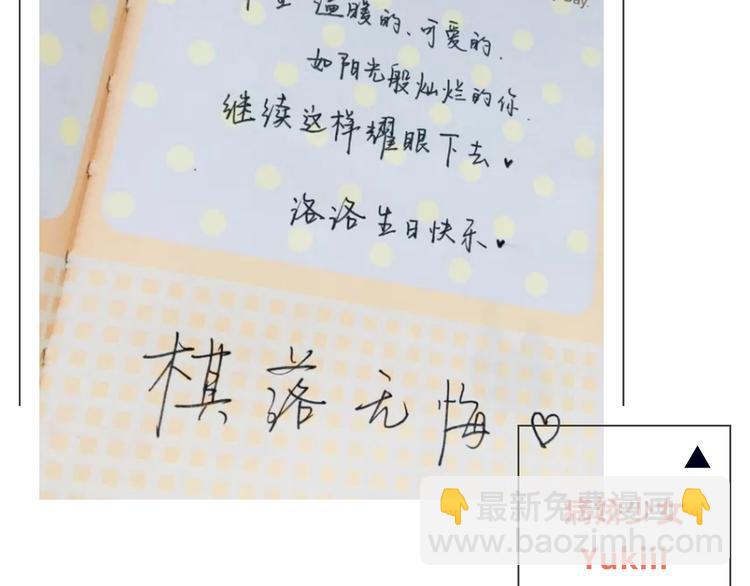 温暖的、可爱的.
如阳光般灿烂的你.
继续这样耀眼下去♥
洛洛生日快乐♥
棋落无悔♡
▲
👇最新免费漫画👇
少女
www.baozimh.com
Yukiii